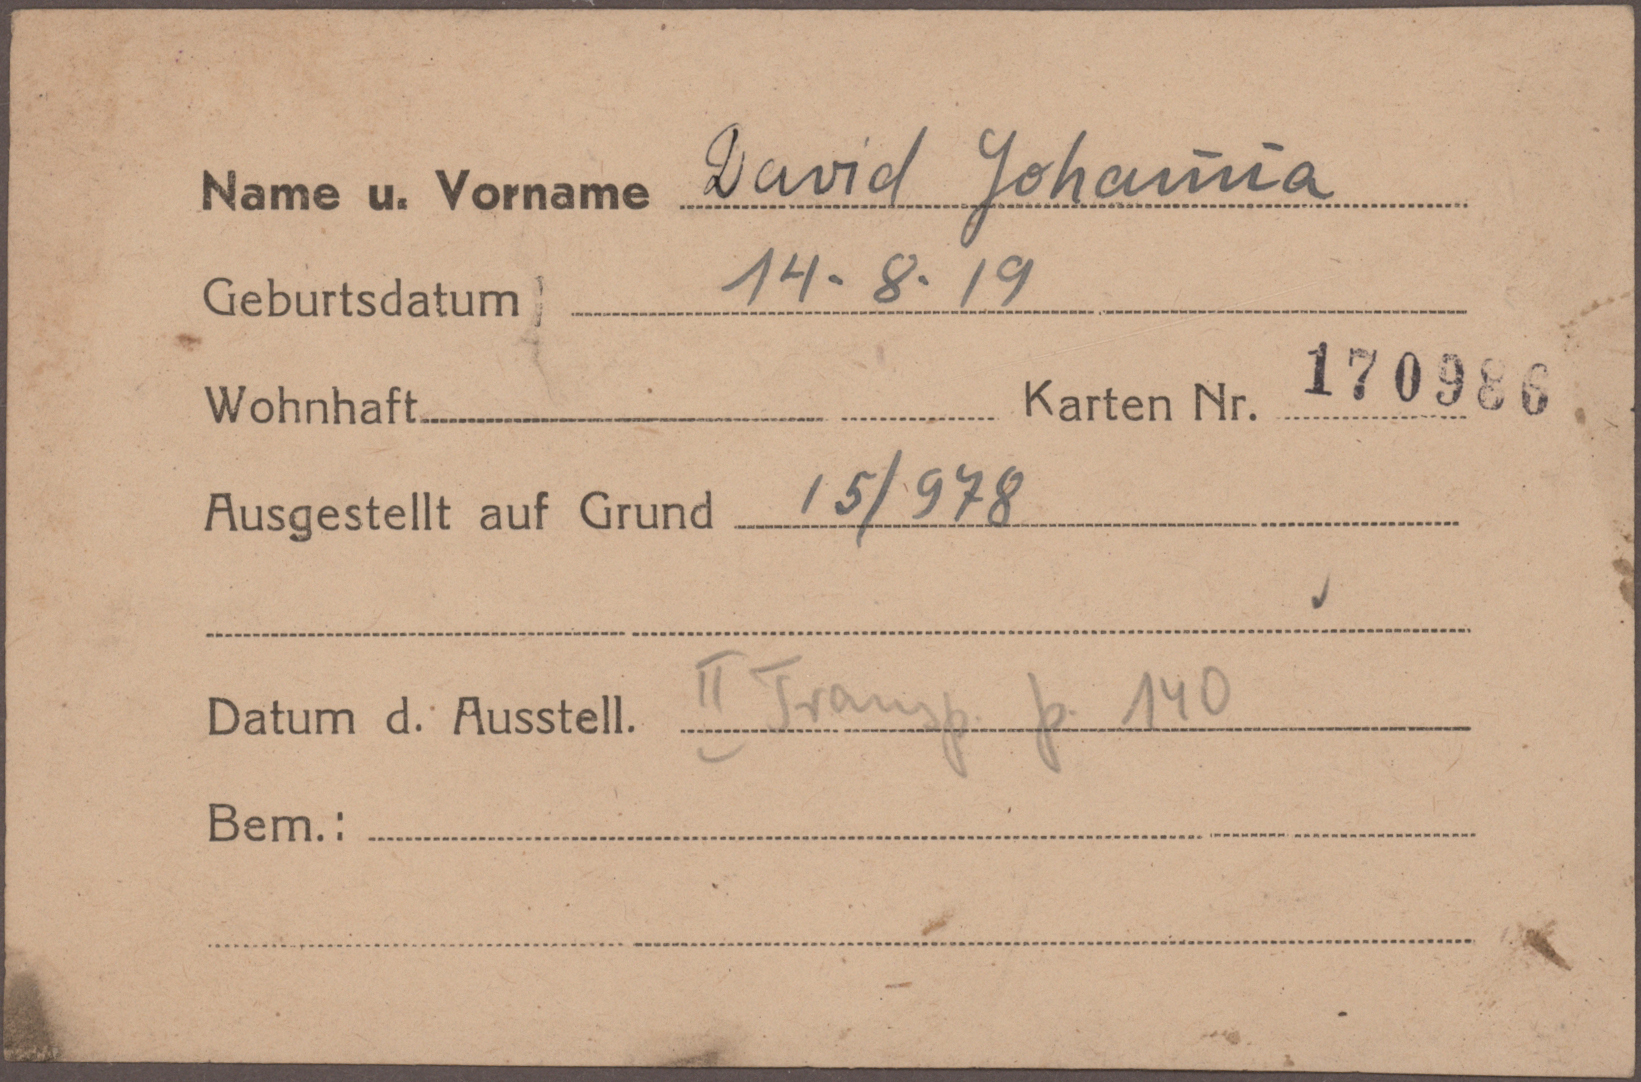 Name u. Vorname David Johanna
Geburtsdatum 14. 8. 19
Wohnhaft Karten Nr. 170986
Ausgestellt auf Grund 15/978
Datum d. Ausstell. II Transp. p. 140
Bem.: